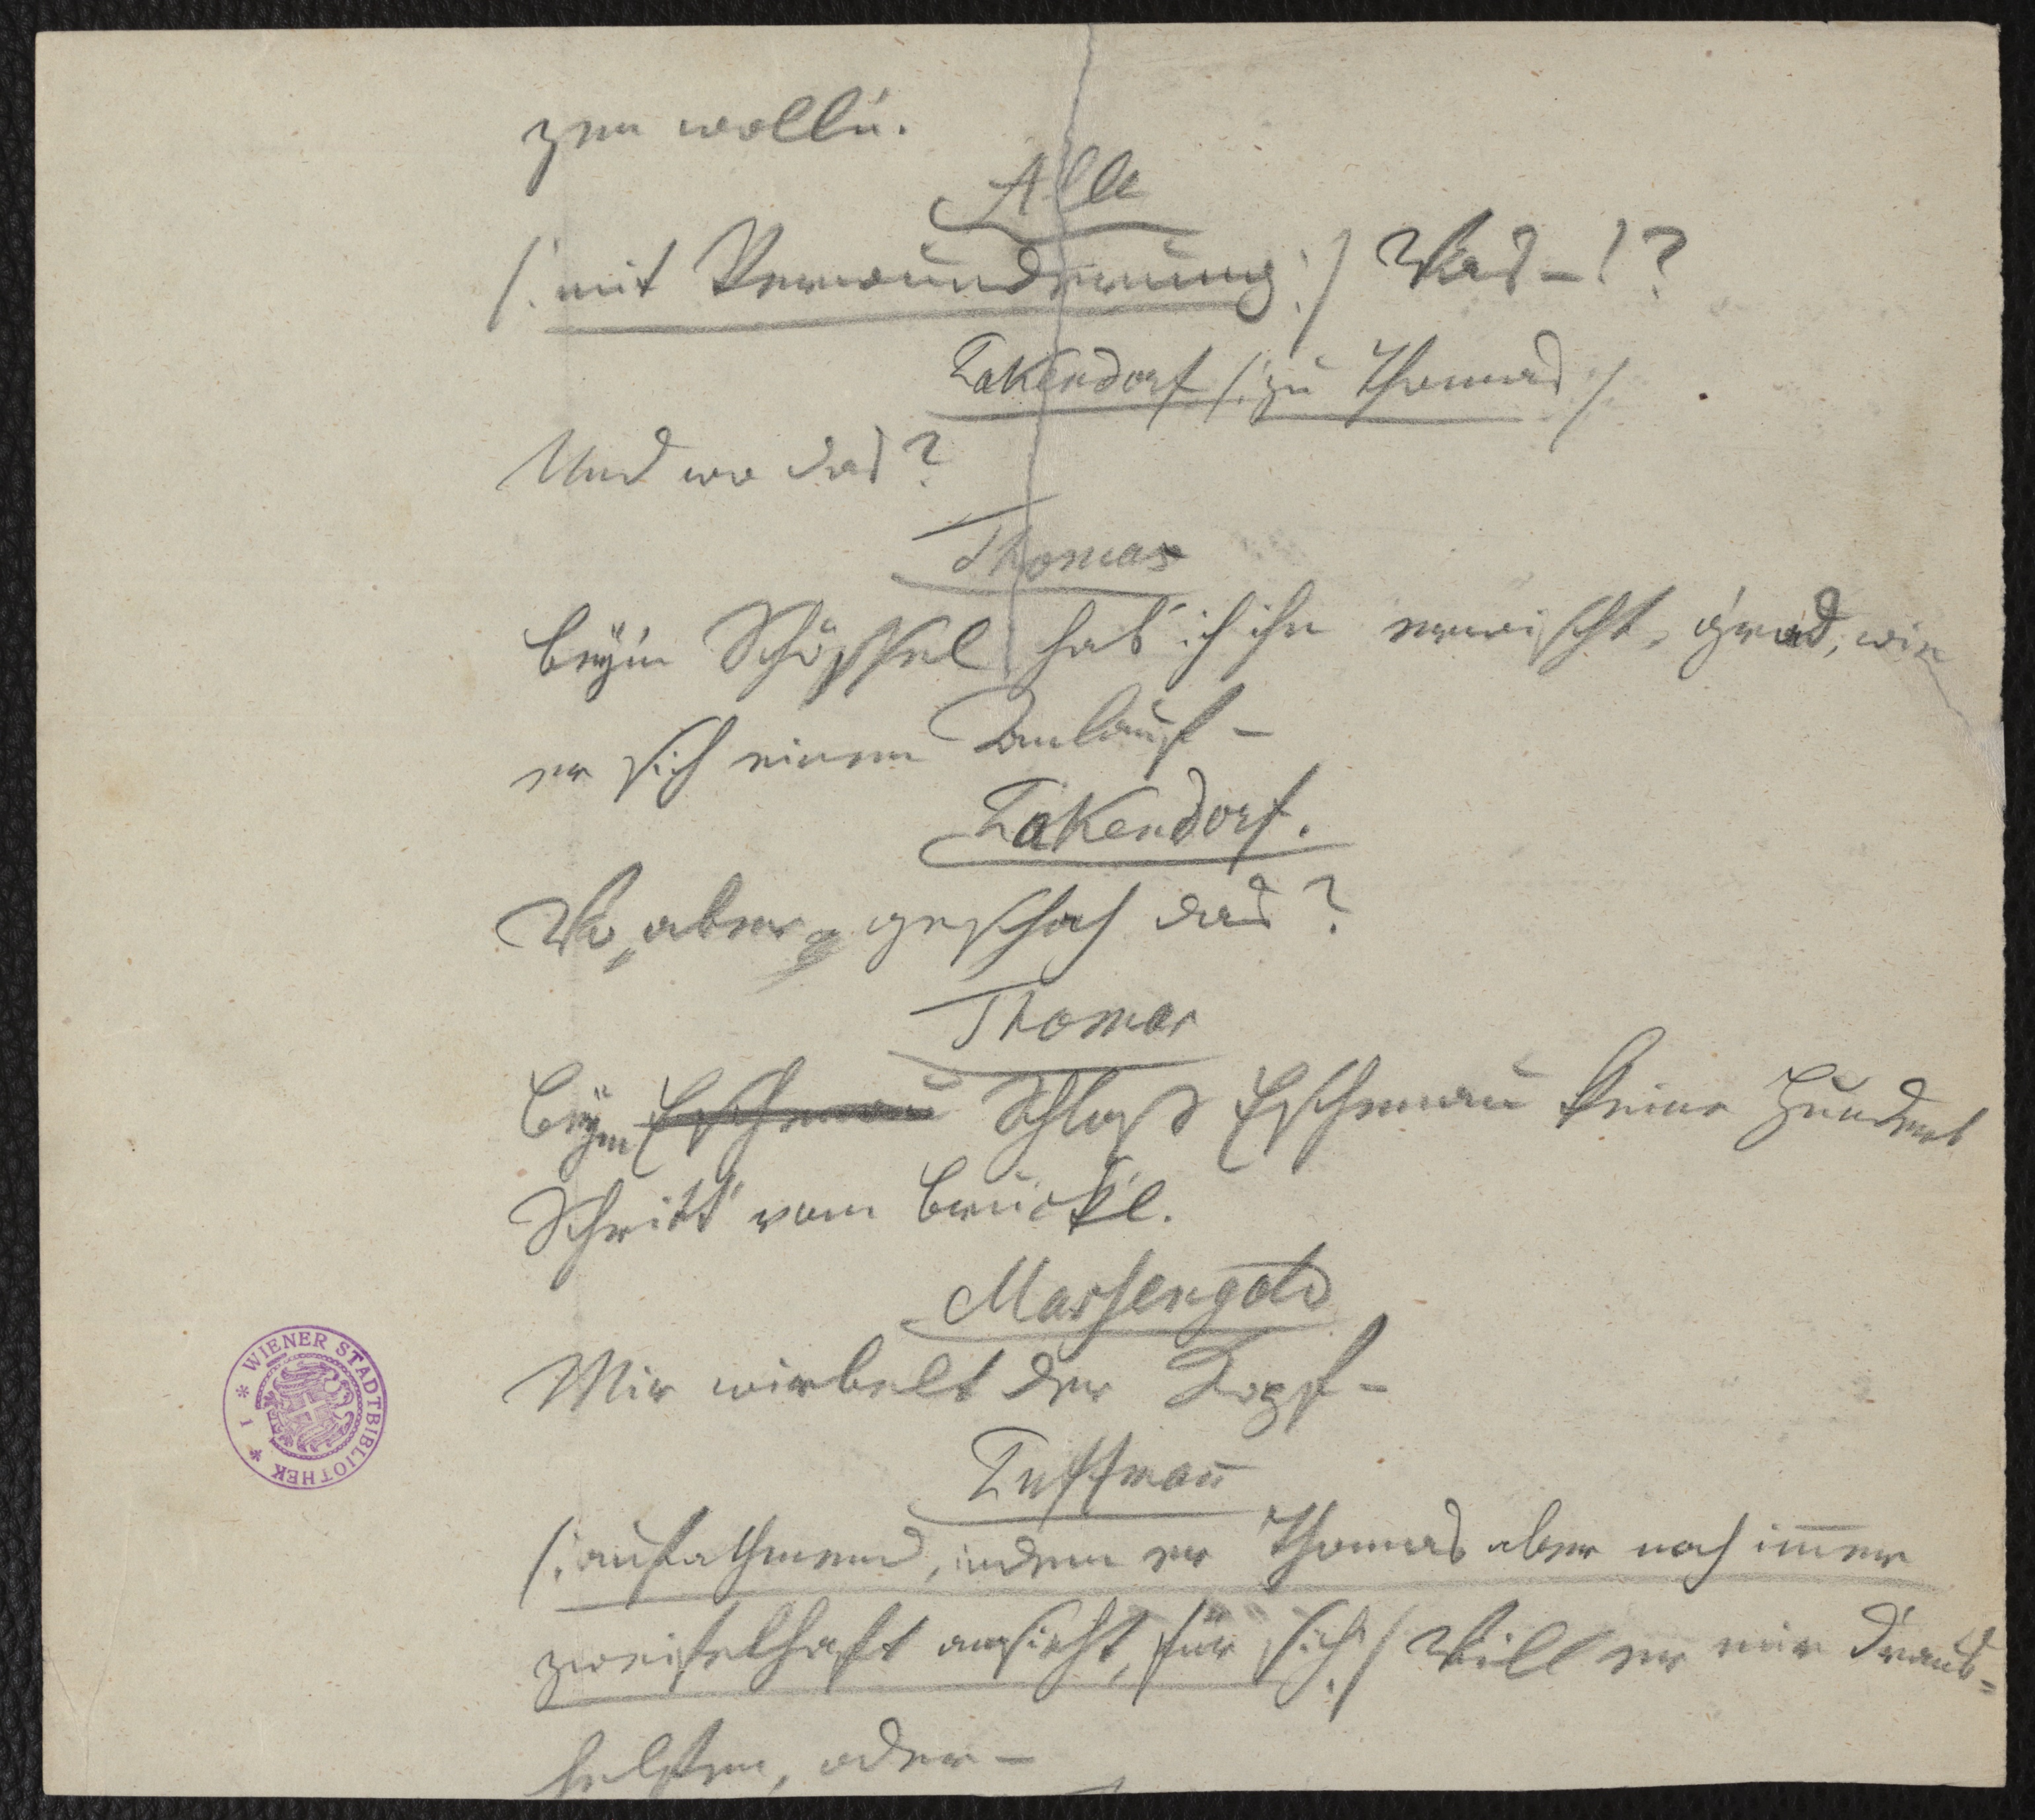 zen woll'n.
Alle
/: mit Verwunderung :/ Was – ! ?
Fakendorf /: zu Thomas :/
Und wo das?
Thomas
bey'n Schößel hab' ich ihn erwischt, g'rad, wie
er sich einen Anlauf –
Fakendorf.
Wo, aber, geschah das?
Thomas
beym Eschenau Schloß Eschenau keine hundert
Schritt' vom Brück'l.
Massengold
Mir wirbelt der Kopf –
Tuffmann
/: aufathmend, indem er Thomas aber noch immer
zweifelhaft ansieht, für sich :/ Will er mir d'raus=
helfen, oder –
WIENER STADTBIBLIOTHEK * 1 *